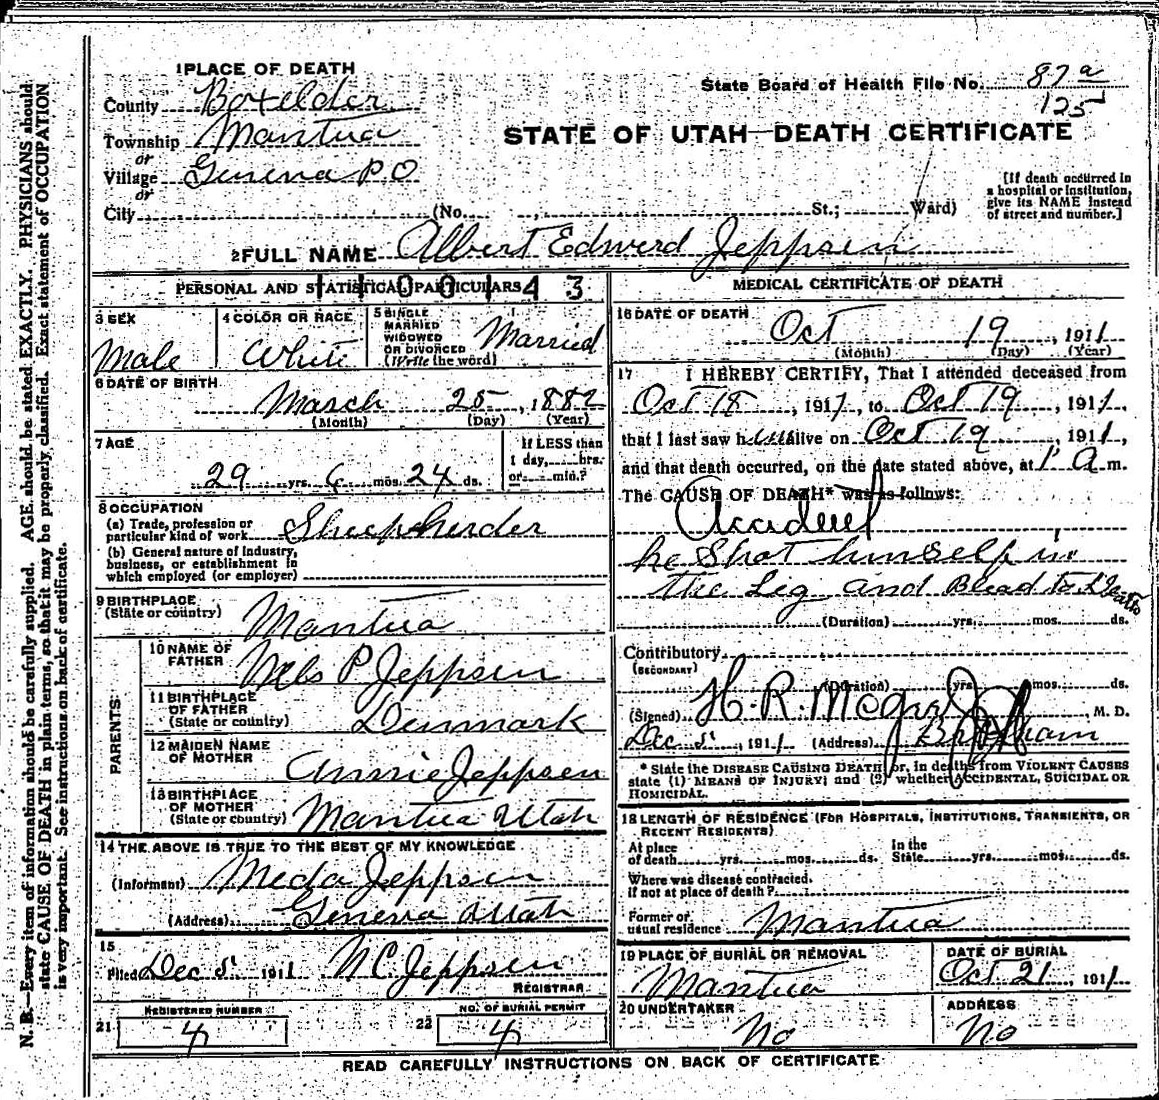 1 PLACE OF DEATH
County Boxelder
Township Mantua
or
Village Geneva P O
or
City (No. , St.; Ward)
State Board of Health File No. 87 a
125
STATE OF UTAH—DEATH CERTIFICATE
[If death occurred in
a hospital or institution,
give its NAME instead
of street and number.]
2 FULL NAME Albert Edward Jeppsen
PERSONAL AND STATISTICAL PARTICULARS
3 SEX
Male
4 COLOR OR RACE
White
5 SINGLE
MARRIED
WIDOWED
OR DIVORCED
(Write the word)
Married
6 DATE OF BIRTH
March 25, 1882
(Month) (Day) (Year)
7 AGE
29 yrs. 6 mos. 24 ds.
If LESS than
1 day, hrs.
or min.?
8 OCCUPATION
(a) Trade, profession or
particular kind of work Sheepherder
(b) General nature of Industry,
business, or establishment in
which employed (or employer)
9 BIRTHPLACE
(State or country) Mantua
PARENTS
10 NAME OF
FATHER Nels P Jeppsen
11 BIRTHPLACE
OF FATHER
(State or country) Denmark
12 MAIDEN NAME
OF MOTHER Annie Jeppsen
13 BIRTHPLACE
OF MOTHER
(State or country) Mantua Utah
14 THE ABOVE IS TRUE TO THE BEST OF MY KNOWLEDGE
(Informant) Meda Jeppsen
(Address) Geneva Utah
15
Filed Dec 5 1911 N C Jeppsen
REGISTRAR
21 REGISTERED NUMBER
4
22 NO. OF BURIAL PERMIT
4
MEDICAL CERTIFICATE OF DEATH
16 DATE OF DEATH
Oct 19, 1911
(Month) (Day) (Year)
17 I HEREBY CERTIFY, That I attended deceased from
Oct 18, 1911, to Oct 19, 1911,
that I last saw him alive on Oct 19, 1911,
and that death occurred, on the date stated above, at 1 a m.
The CAUSE OF DEATH* was as follows:
Accident
he Shot himself in
the Leg and Blead to Death
(Duration) yrs. mos. ds.
Contributory
(SECONDARY)
(Duration) yrs. mos. ds.
(Signed) H. R. , M. D.
Dec 5, 1911 (Address) Brigham
* State the DISEASE CAUSING DEATH or, in deaths from VIOLENT CAUSES
state (1) MEANS OF INJURY; and (2) whether ACCIDENTAL, SUICIDAL OR
HOMICIDAL.
18 LENGTH OF RESIDENCE (FOR HOSPITALS, INSTITUTIONS, TRANSIENTS, OR
RECENT RESIDENTS)
At place
of death yrs. mos. ds.
In the
State yrs. mos. ds.
Where was disease contracted.
If not at place of death?
Former or
usual residence Mantua
19 PLACE OF BURIAL OR REMOVAL
Mantua
DATE OF BURIAL
Oct 21, 1911
20 UNDERTAKER
No
ADDRESS
No
READ CAREFULLY INSTRUCTIONS ON BACK OF CERTIFICATE
N. B.—Every item of information should be carefully supplied. AGE should be stated EXACTLY. PHYSICIANS should
state CAUSE OF DEATH in plain terms, so that it may be properly classified. Exact statement of OCCUPATION
is very important. See instructions on back of certificate.